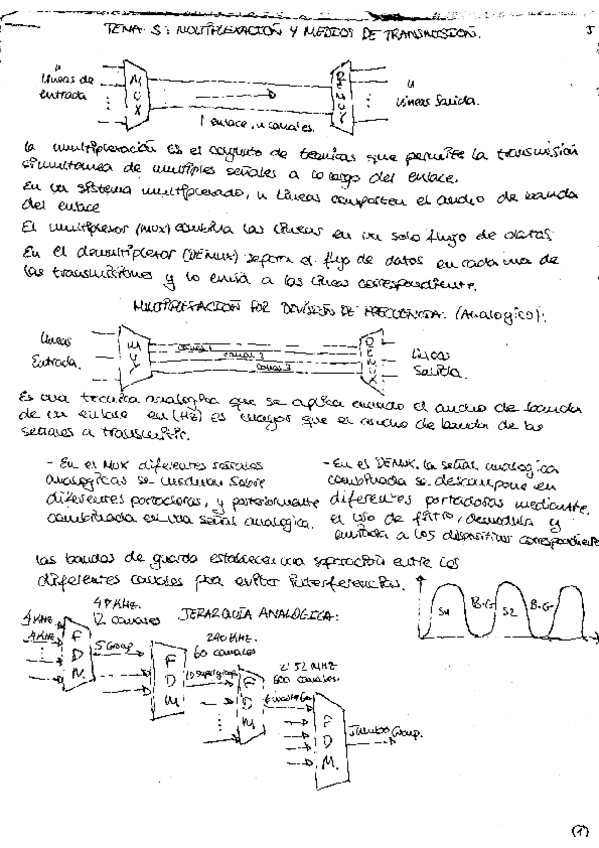 TEMA 5: MULTIPLEXACIÓN Y MEDIOS DE TRANSMISIÓN.
n
líneas de
entrada
MUX
DEMUX
n
Líneas Salida.
1 enlace, n canales.
la multiplexación es el conjunto de tecnicas que permite la transmisión
simultanea de multiples señales a lo largo del enlace.
En un sistema multiplexado, n líneas comparten el ancho de banda
del enlace
El multiplexor (MUX) combina las líneas en un solo flujo de datos.
En el demultiplexor (DEMUX) separa el flujo de datos en cada una de
las transmisiones y lo envia a las líneas correspondiente.
MULTIPLEXACIÓN POR DIVISIÓN DE FRECUENCIA: (Analogico):
líneas
Entrada.
MUX
canal 1
canal 2
canal 3
DEMUX
Líneas
Salida.
Es una tecnica analogica que se aplica cuando el ancho de banda
de un enlace en (Hz) es mayor que el ancho de banda de las
señales a transmitir.
- En el MUX diferentes señales
analogicas se modulan sobre
diferentes portadoras, y posteriormente
combinada en una señal analogica.
- En el DEMUX, la señal analogica
combinada se descompone en
diferentes portadoras mediante
el uso de filtro, demodula y
enviada a los dispositivos correspondiente
las bandas de guarda establecen una separación entre los
diferentes canales para evitar interferencias.
S1 B.G S2 B.G
JERARQUÍA ANALÓGICA:
4 KHz
4 KHz
48 KHz.
12 canales
FDM
5 Group
240 KHz.
60 canales
FDM
10 supergroup
2'52 MHz
600 canales.
FDM
6 master
FDM.
Jumbo Group.
(1)